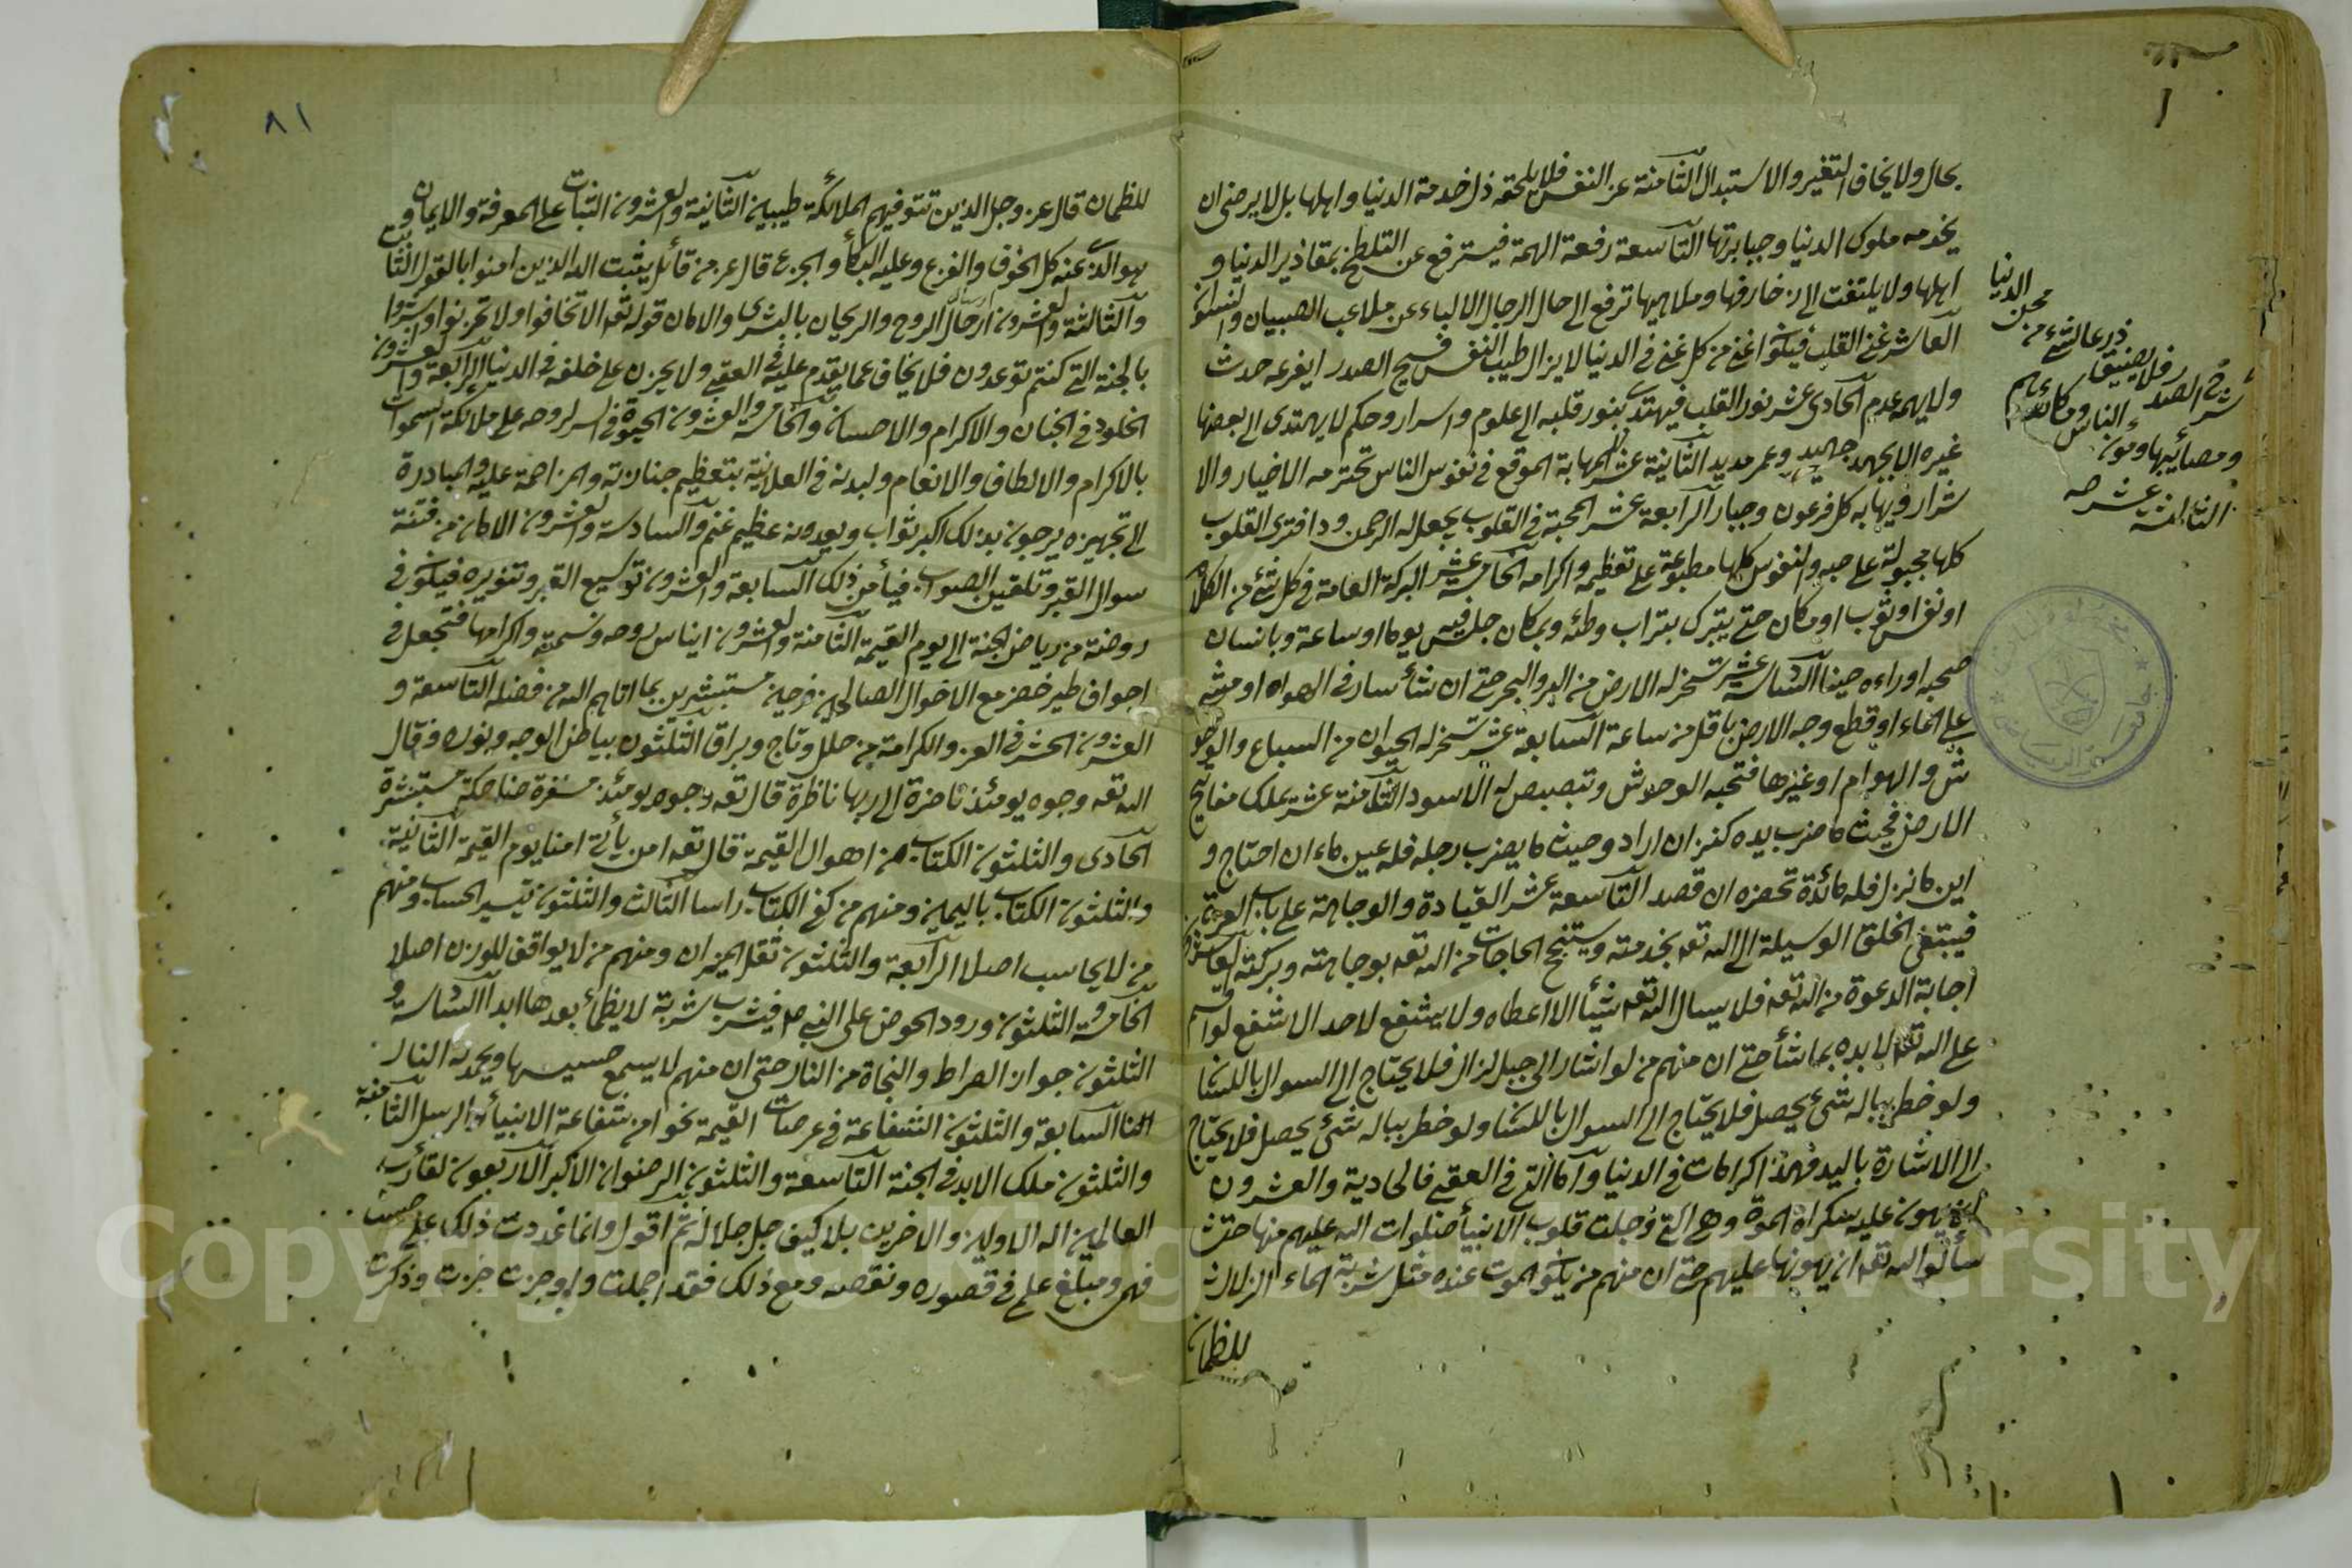 بحال ولا يخاف التغير والاستبدال الثامنة عز النفس فلا يلحقه ذل خدمة الدنيا واهلها بل لا يرضى ان
يخدمه ملوك الدنيا وجبابرتها التاسعة رفعة الهمة فيترفع عن التلطخ بمقاذير الدنيا و
اهلها ولا يلتفت الى زخارفها وملاهيها ترفع الى حال الرجال الالباء عن ملاعب الصبيان والنسوان
العاشر غنى القلب فيكون اغنى من كل غنى في الدنيا لا يزال طيب النفس فسيح الصدر لا يفزعه حدث
ولا يهمه عدم الحادى عشر نور القلب فيهتدى بنور قلبه الى علوم واسرار وحكم لا يهتدى الى بعضها
غيره الا بجهد جهيد وعمر مديد الثانية عشر المهابة الموقع في نفوس الناس تحترمه الاخيار والا
شرار ويهابه كل فرعون وجبار الرابعة عشر المحبة في القلوب يجعل له الرحمن ودا فترى القلوب
كلها مجبولة على حبه والنفوس كلها مطبوعة على تعظيمه واكرامه الخامسة عشر البركة العامة في كل شئ من الكلام
او نفس او ثوب او مكان حتى يتبرك بتراب وطئه وبمكان جلس فيه يوما او ساعة وبانسان
صحبه او رآه حينا السادسة عشر تسخر له الارض من البر والبحر حتى ان شأ سار في الهواء او مشى
على الماء او قطع وجه الارض باقل من ساعة السابعة عشر تسخر له الحيوان من السباع والوحو
ش والهوام او غيرها فتحبه الوحوش وتبصبص له الاسود الثامنة عشر ملك مفاتيح
الارض فحيث ما ضرب بيده كنز ان اراد وحيث ما يضرب رجله فله عين ماء ان احتاج و
اين ما نزل فله مائدة تحضره ان قصد التاسعة عشر القيادة والوجاهة على باب العزة
فيبتغى الخلق الوسيلة الى الله تعه بخدمته ويستنجح الحاجات من الله تعه بوجاهته وبركته العاشرون
اجابة الدعوة من الله تعه فلا يسال الله تعه شيأ الا اعطاه ولا يشفع لاحد الا شفع لو اقسم
على الله تعه لابره بما شأ حتى ان منهم من لو اشار الى جبل لزال فلا يحتاج الى السوال باللسا
ولو خطر بباله شئ يحصل فلا يحتاج الى السوال باللسا ولو خطر بباله شئ يحصل فلا يحتاج
الى الاشارة باليد فهذا كرامات في الدنيا وآما التي في العقبى فالحادية والعشرون
ان يهون عليه سكرات الموة وهى التى وجلت قلوب الانبيأ صلوات الله عليهم منها حتى
سألوا الله تعه ان يهونها عليهم حتى ان منهم من يكون الموت عنده مثل شربة الماء الزلال
للظمان
الدنيا
محن
ذرعا لشئ من
شرح الصدر فلا يضيق
ومصائبها ومؤن الناس ومكائدهم
الثالثة عشر
٨١
للظمان قال عز وجل الذين تتوفيهم الملائكة طيبين الثانية والعشرون الثبات على المعرفة والايمان و
هو الذى عنه كل الخوف والفزع وعليه البكأ والجزع قال عز من قائل يثبت الله الذين امنوا بالقول الثابت
والثالثة والعشرون ارسال الروح والريحان بالبشرى والامان قوله تعه الا تخافوا ولا تحزنوا وابشروا
بالجنة التى كنتم توعدون فلا يخاف عما يقدم عليه في العقبى ولا يحزن على خلفه في الدنيا الرابعة والعشرون
الخلود في الجنان والاكرام والاحسان والخامسة والعشرون الحيوة في السر لروحه على ملائكة السموات
بالاكرام والالطاف والانعام ولبدنه في العلانية بتعظيم جنازته والمزاحمة عليه والمبادرة
الى تجهيزه يرجون بذلك اكبر ثواب ويعدونه عظيم غنم والسادسة والعشرون الامان من فتنة
سوال القبر وتلقين الصواب فيأمن ذلك السابعة والعشرون توسيع القبر وتنويره فيكون في
روضة من رياض الجنة الى يوم القيمة الثامنة والعشرون ايناس روحه ونسمته واكرامها فتجعل في
اجواف طير خضر مع الاخوان الصالحين فرحين مستبشرين بما اتاهم الله من فضله التاسعة و
العشرون الحشر في العز والكرامة من حلل وتاج وبراق الثلثون بياض الوجه ونوره وقال
الله تعه وجوه يومئذ ناضرة الى ربها ناظرة قال تعه وجوه يومئذ مسفرة ضاحكة مستبشرة
الحادى والثلثون الكتاب من اهوال القيمة قال تعه امن يأتى امنا يوم القيمة الثانية
والثلثون الكتاب باليمين ومنهم من كفى الكتاب راسا الثالث والثلثون تيسير الحساب ومنهم
من لا يحاسب اصلا الرابعة والثلثون ثقل الميزان ومنهم من لا يواقف للوزن اصلا
الخامسة والثلثون ورود الحوض على النبى صم فيشرب شربة لا يظمأ بعدها ابدا السادسة و
الثلثون جواز الصراط والنجاة من النار حتى ان منهم لا يسمع حسيسها ويخمد له النار
السابعة والثلثون الشفاعة في عرصات القيمة نحوا من شفاعة الانبيأ والرسل الثامنة
والثلثون ملك الابد في الجنة التاسعة والثلثون الرضوان الاكبر الاربعون لقاء رب
العالمين اله الاولين والاخرين بلا كيف جل جلاله ثم اقول وانما عددت ذلك على حسب
فهمى ومبلغ علمى في قصوره ونقصه ومع ذلك فقد اجملت واوجزت وذكرت
Copyright © King Saud University